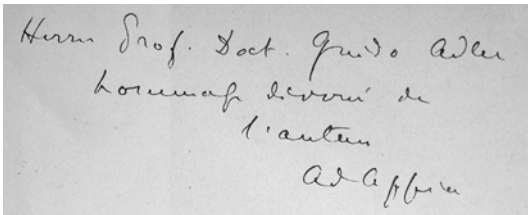 Herrn Prof. Doct. Guido Adler
hommage dévoué de
l'auteur
Ad Appia